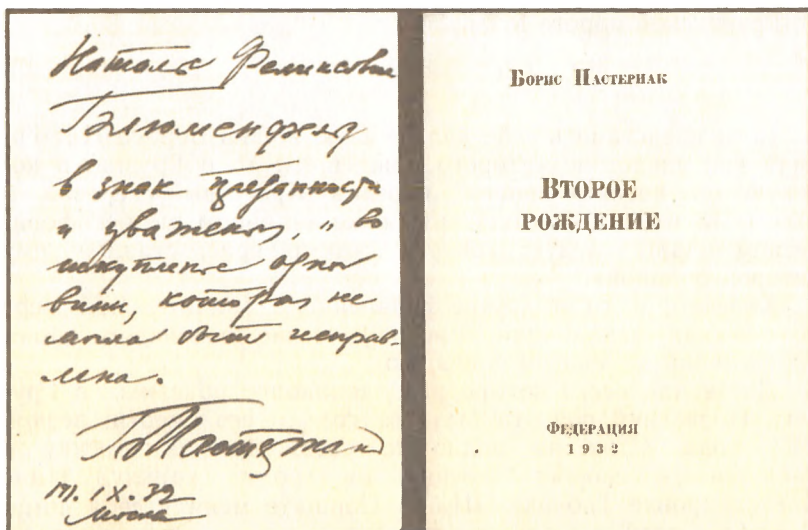 Наталье Феликсовне
Блюменфельд
в знак преданности
и уваженья, и во
искупленье одной
вины, которая не
могла быть исправ-
лена.
БПастернак
IX.32
Москва
Борис Пастернак
Второе
рождение
Федерация
1932